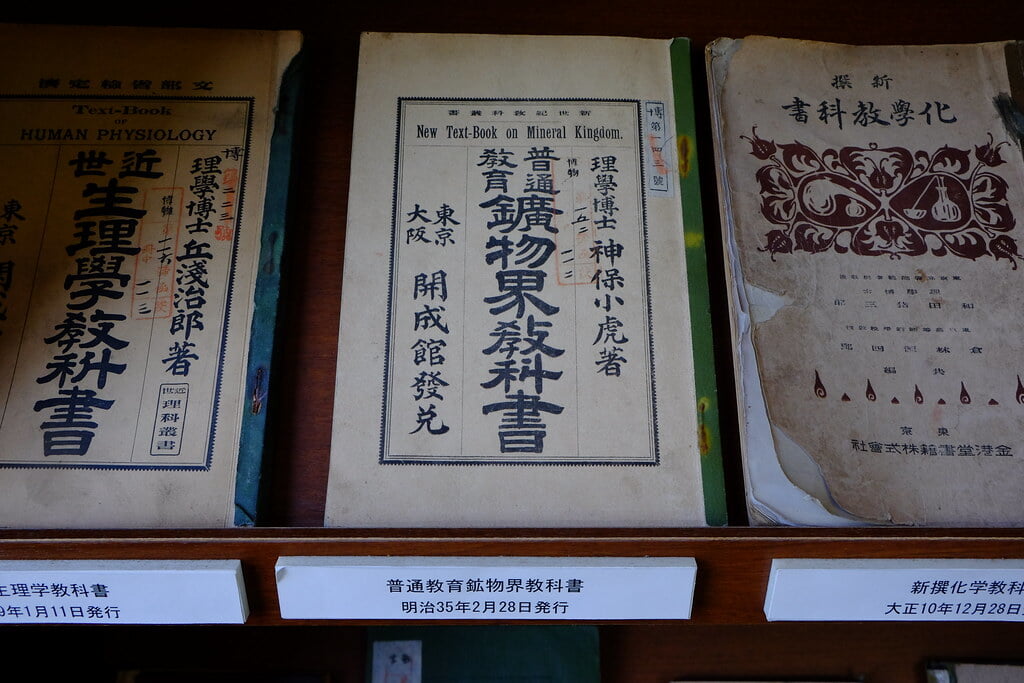 文部省檢定濟
Text-Book
OF
HUMAN PHYSIOLOGY
理學博士 丘淺治郎 著
近世
生理學教科書
東京 開成
近世
理科叢書
新世紀教科叢書
New Text-Book on Mineral Kingdom.
理學博士 神保小虎著
普通
教育
鑛物界教科書
東京
大阪
開成館發兌
博物
博第一四三號
新撰
化學教科書
理學博士
和田猪三郎
共編
東京
金港堂書籍株式會社
生理学教科書
9年1月11日発行
普通教育鉱物界教科書
明治35年2月28日発行
新撰化学教科
大正10年12月28日